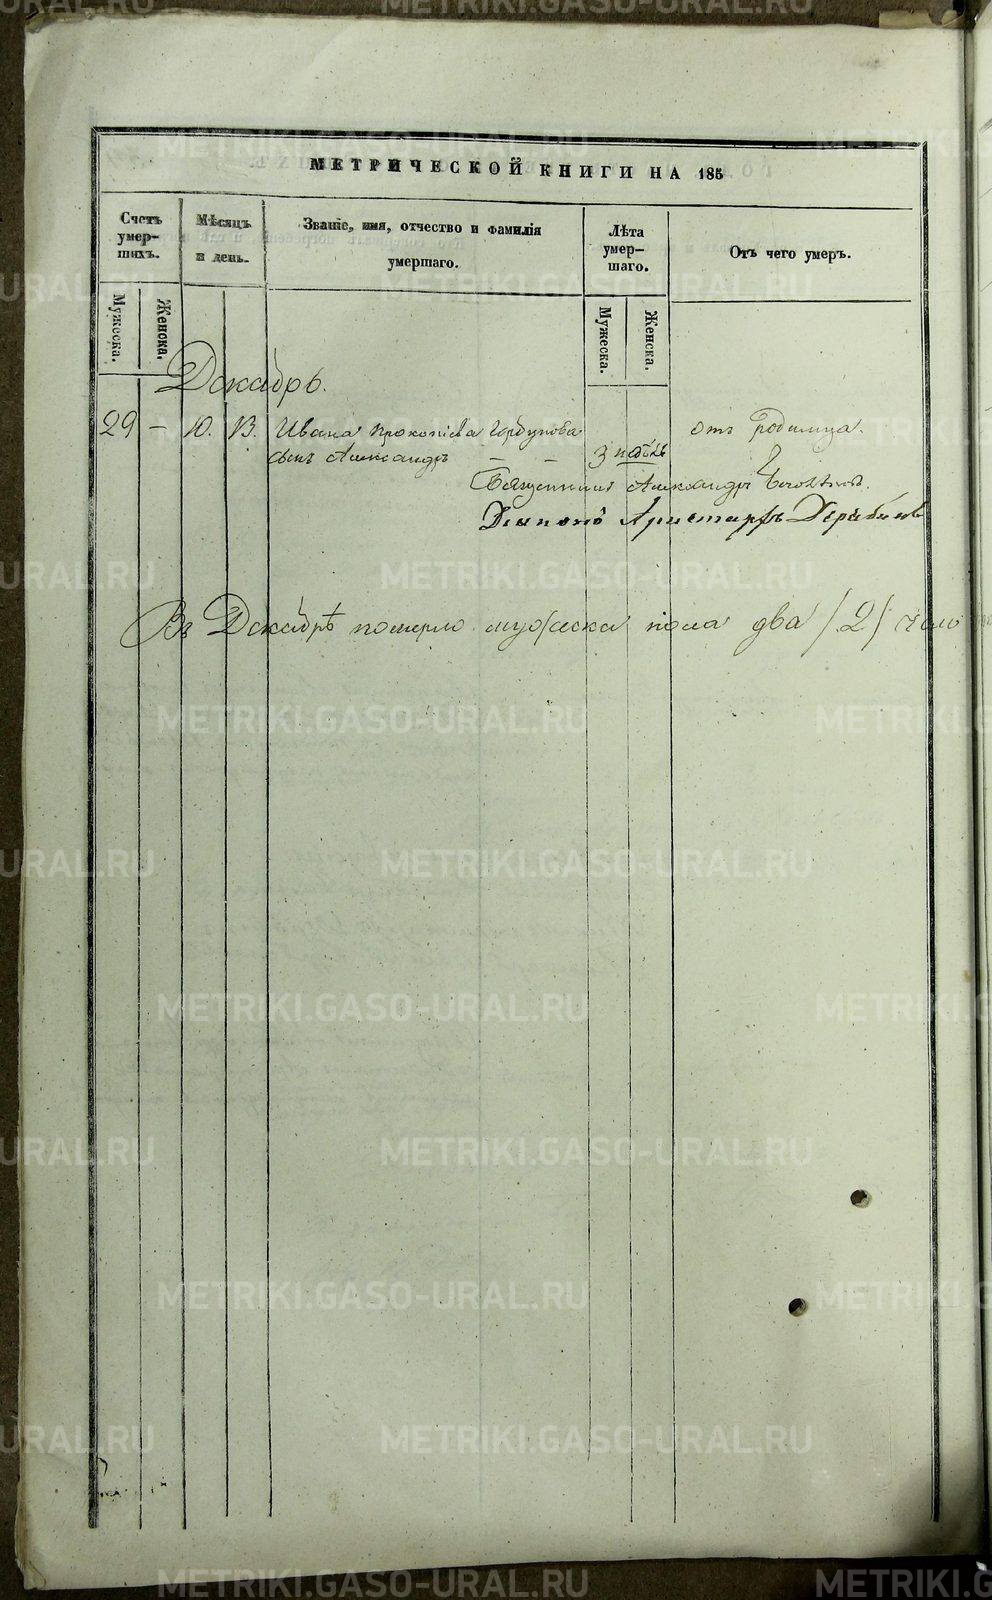 METRIKI.GASO-URAL.RU
МЕТРИЧЕСКОЙ КНИГИ НА 185
Счетъ умер-шихъ.
Мѣсяцъ и день.
Званіе, имя, отчество и фамилія умершаго.
Лѣта умер-шаго.
Отъ чего умеръ.
Мужеска.
Женска.
Мужеска.
Женска.
Декабрь.
29 – 10. 13. Ивана Прокопіева Горбунова отъ родимца.
сынъ Александръ – – 3 недѣль
Священникъ Александръ
Дьяконъ Аристархъ Дерябинъ
Въ Декабрѣ померло мужеска пола два /2/ чело